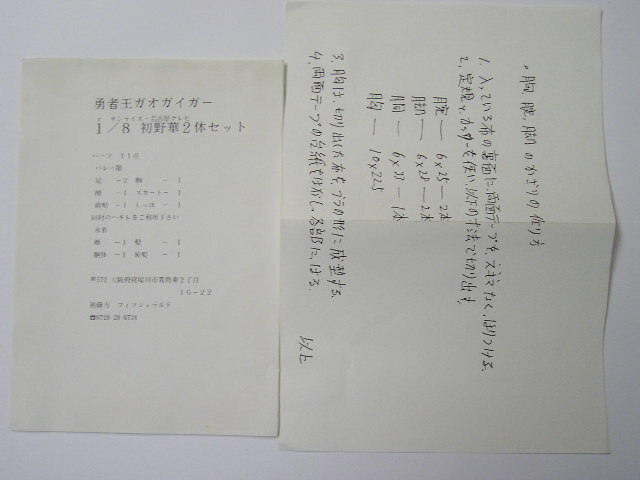 勇者王ガオガイガー
© サンライズ・名古屋テレビ
1/8 初野華2体セット
パーツ 11点
バレー服
足 -2 胸 -1
顔 -1 スカート-1
前髪 -1 しっぽ -1
同封のハギレをご利用下さい
水着
顔 -1 髪 -1
胴体 -1 前髪 -1
〒572 大阪府寝屋川市
16-22
後藤方 フィツジェラルド
☎0720 28 6734
。胸、腕、脚のかざりの作り方
1、入っている布の裏面に、両面テープを、スキマなく、はりつける。
2、定規と、カッターを使い、以下の寸法で切り出す。
腕 — 6×25 — 2本
脚 — 6×28 — 2本
胴 — 6×37 — 1本
胸 — 10×225
3、胸は、切り出した布を、ブラの形に成型する。
4、両面テープの台紙をはがし、各部に、はる。
以上